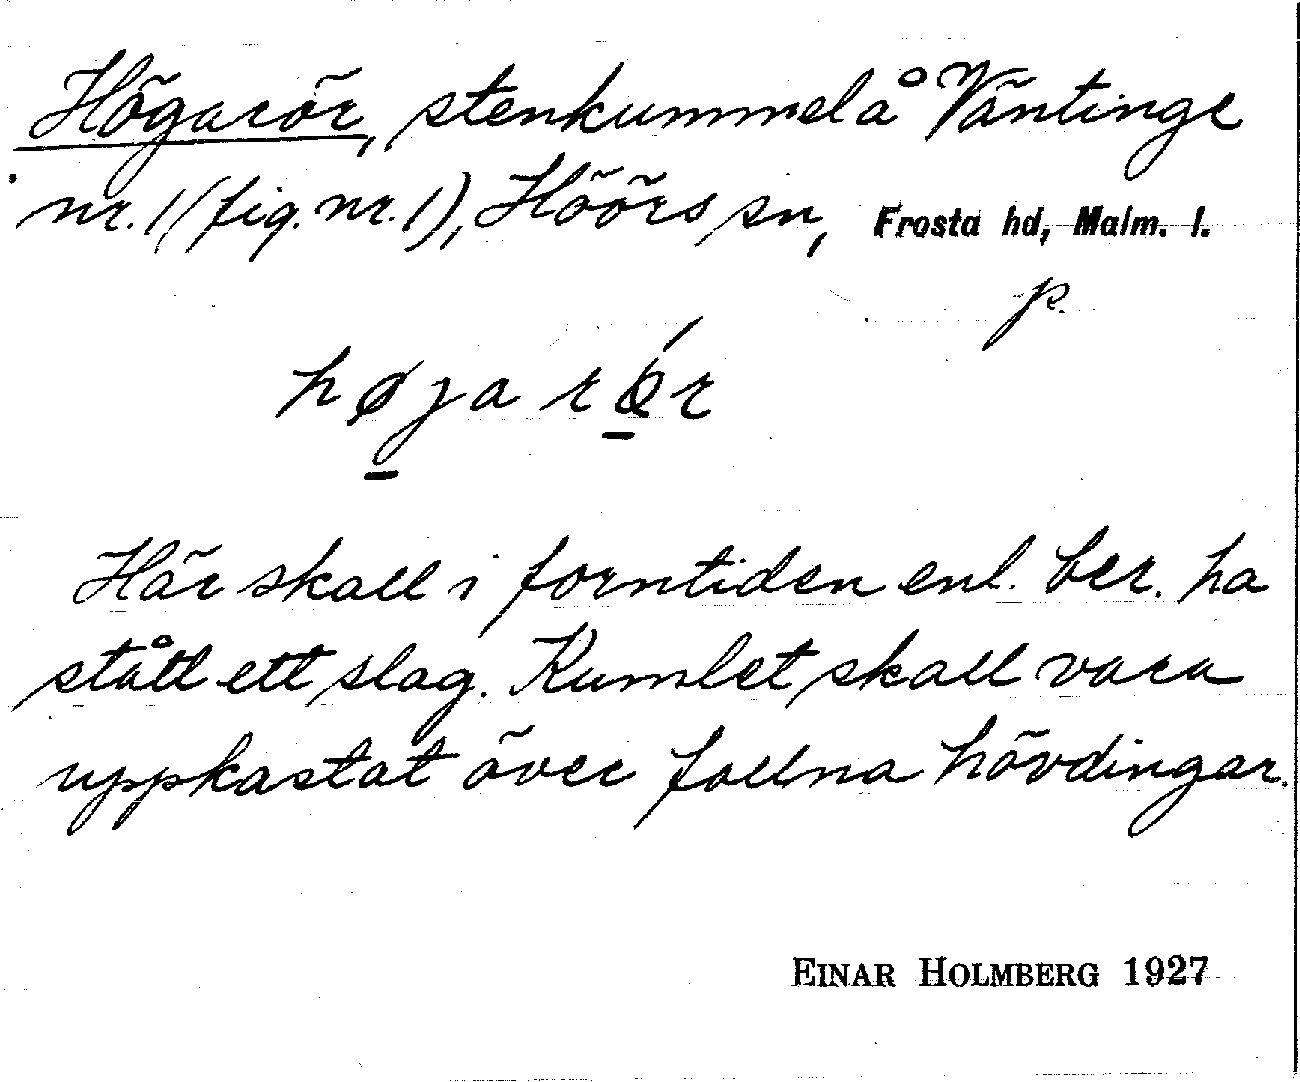 Högarör, stenkummel å Väntinge
nr. 1 (fig. nr. 1), Höörs sn, Frosta hd, Malm. l.
p.
høja rǿr
Här skall i forntiden enl. ber. ha
stått ett slag. Kumlet skall vara
uppkastat över fallna hövdingar.
EINAR HOLMBERG 1927